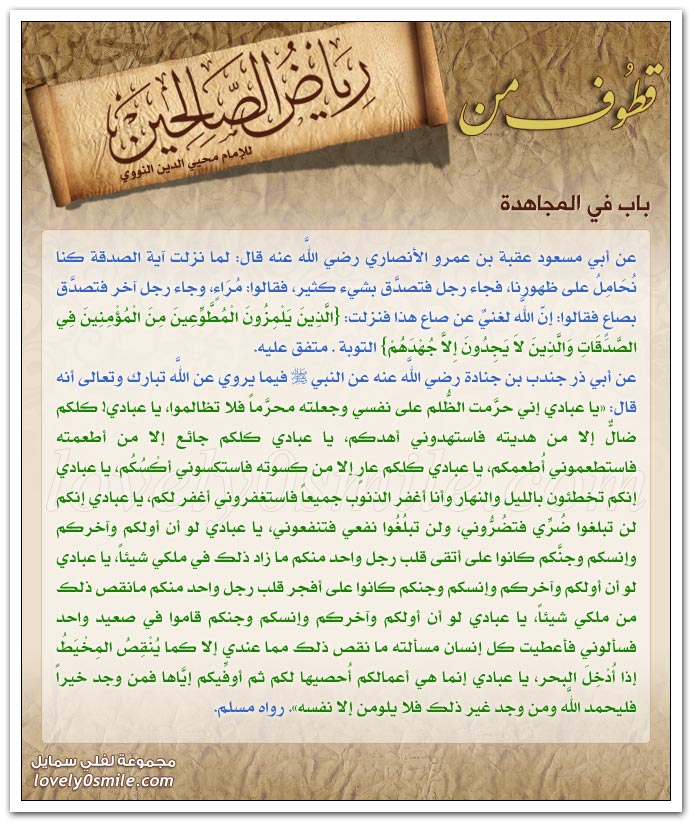 قطوف من
رياض الصالحين
للإمام محيي الدين النووي
باب في المجاهدة
عن أبي مسعود عقبة بن عمرو الأنصاري رضي اللَّه عنه قال: لما نزلت آية الصدقة كنا
نُحَامِلُ على ظهورنا، فجاء رجل فتصدَّق بشيء كثير، فقالوا: مُرَاءٍ، وجاء رجل آخر فتصدَّق
بصاعٍ فقالوا: إنّ اللَّه لغنيٌ عن صاع هذا فنزلت: {الَّذِينَ يَلْمِزُونَ المُطَّوِعِينَ مِنَ المُؤْمِنِينَ فِي
الصَّدَقَاتِ وَالَّذِينَ لاَ يَجِدُونَ إِلاَّ جُهْدَهُمْ} التوبة . متفق عليه.
عن أبي ذر جندب بن جنادة رضي اللَّه عنه عن النبي ﷺ فيما يروي عن اللَّه تبارك وتعالى أنه
قال: «يا عبادي إني حرَّمت الظُّلم على نفسي وجعلته محرَّماً فلا تظالموا، يا عبادي! كلكم
ضالٌّ إلا من هديته فاستهدوني أهدكم، يا عبادي كلكم جائع إلا من أطعمته
فاستطعموني أُطعمكم، يا عبادي كلكم عارٍ إلا من كسوته فاستكسوني أكْسُكُم، يا عبادي
إنكم تخطئون بالليل والنهار وأنا أغفر الذنوب جميعاً فاستغفروني أغفر لكم، يا عبادي إنكم
لن تبلغوا ضُرِّي فتضُرُّوني، ولن تبلُغُوا نفعي فتنفعوني، يا عبادي لو أن أولكم وآخركم
وإنسكم وجنَّكم كانوا على أتقى قلب رجل واحد منكم ما زاد ذلك في ملكي شيئاً، يا عبادي
لو أن أولكم وآخركم وإنسكم وجنكم كانوا على أفجر قلب رجل واحد منكم مانقص ذلك
من ملكي شيئاً، يا عبادي لو أن أولكم وآخركم وإنسكم وجنكم قاموا في صعيد واحد
فسألوني فأعطيت كل إنسان مسألته ما نقص ذلك مما عندي إلا كما يُنْقِصُ المِخْيَطُ
إذا أُدْخِلَ البحر، يا عبادي إنما هي أعمالكم أُحصيها لكم ثم أوفِّيكم إيَّاها فمن وجد خيراً
فليحمد اللَّه ومن وجد غير ذلك فلا يلومن إلا نفسه». رواه مسلم.
lovely0smile.com
مجموعة لفلي سمايل
lovely0smile.com